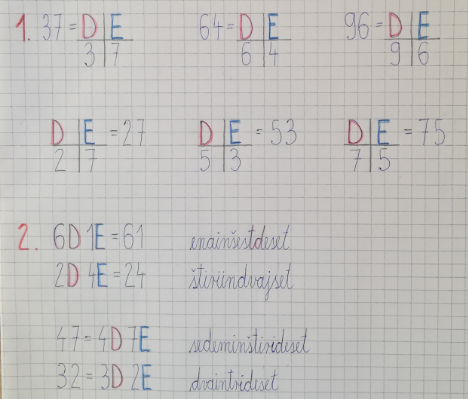 1. 37 = D E 64 = D E 96 = D E
3 7 6 4 9 6
D E = 27 D E = 53 D E = 75
2 7 5 3 7 5
2. 6D 1E = 61 enainšestdeset
2D 4E = 24 štiriindvajset
47 = 4D 7E sedeminštirideset
32 = 3D 2E dvaintrideset